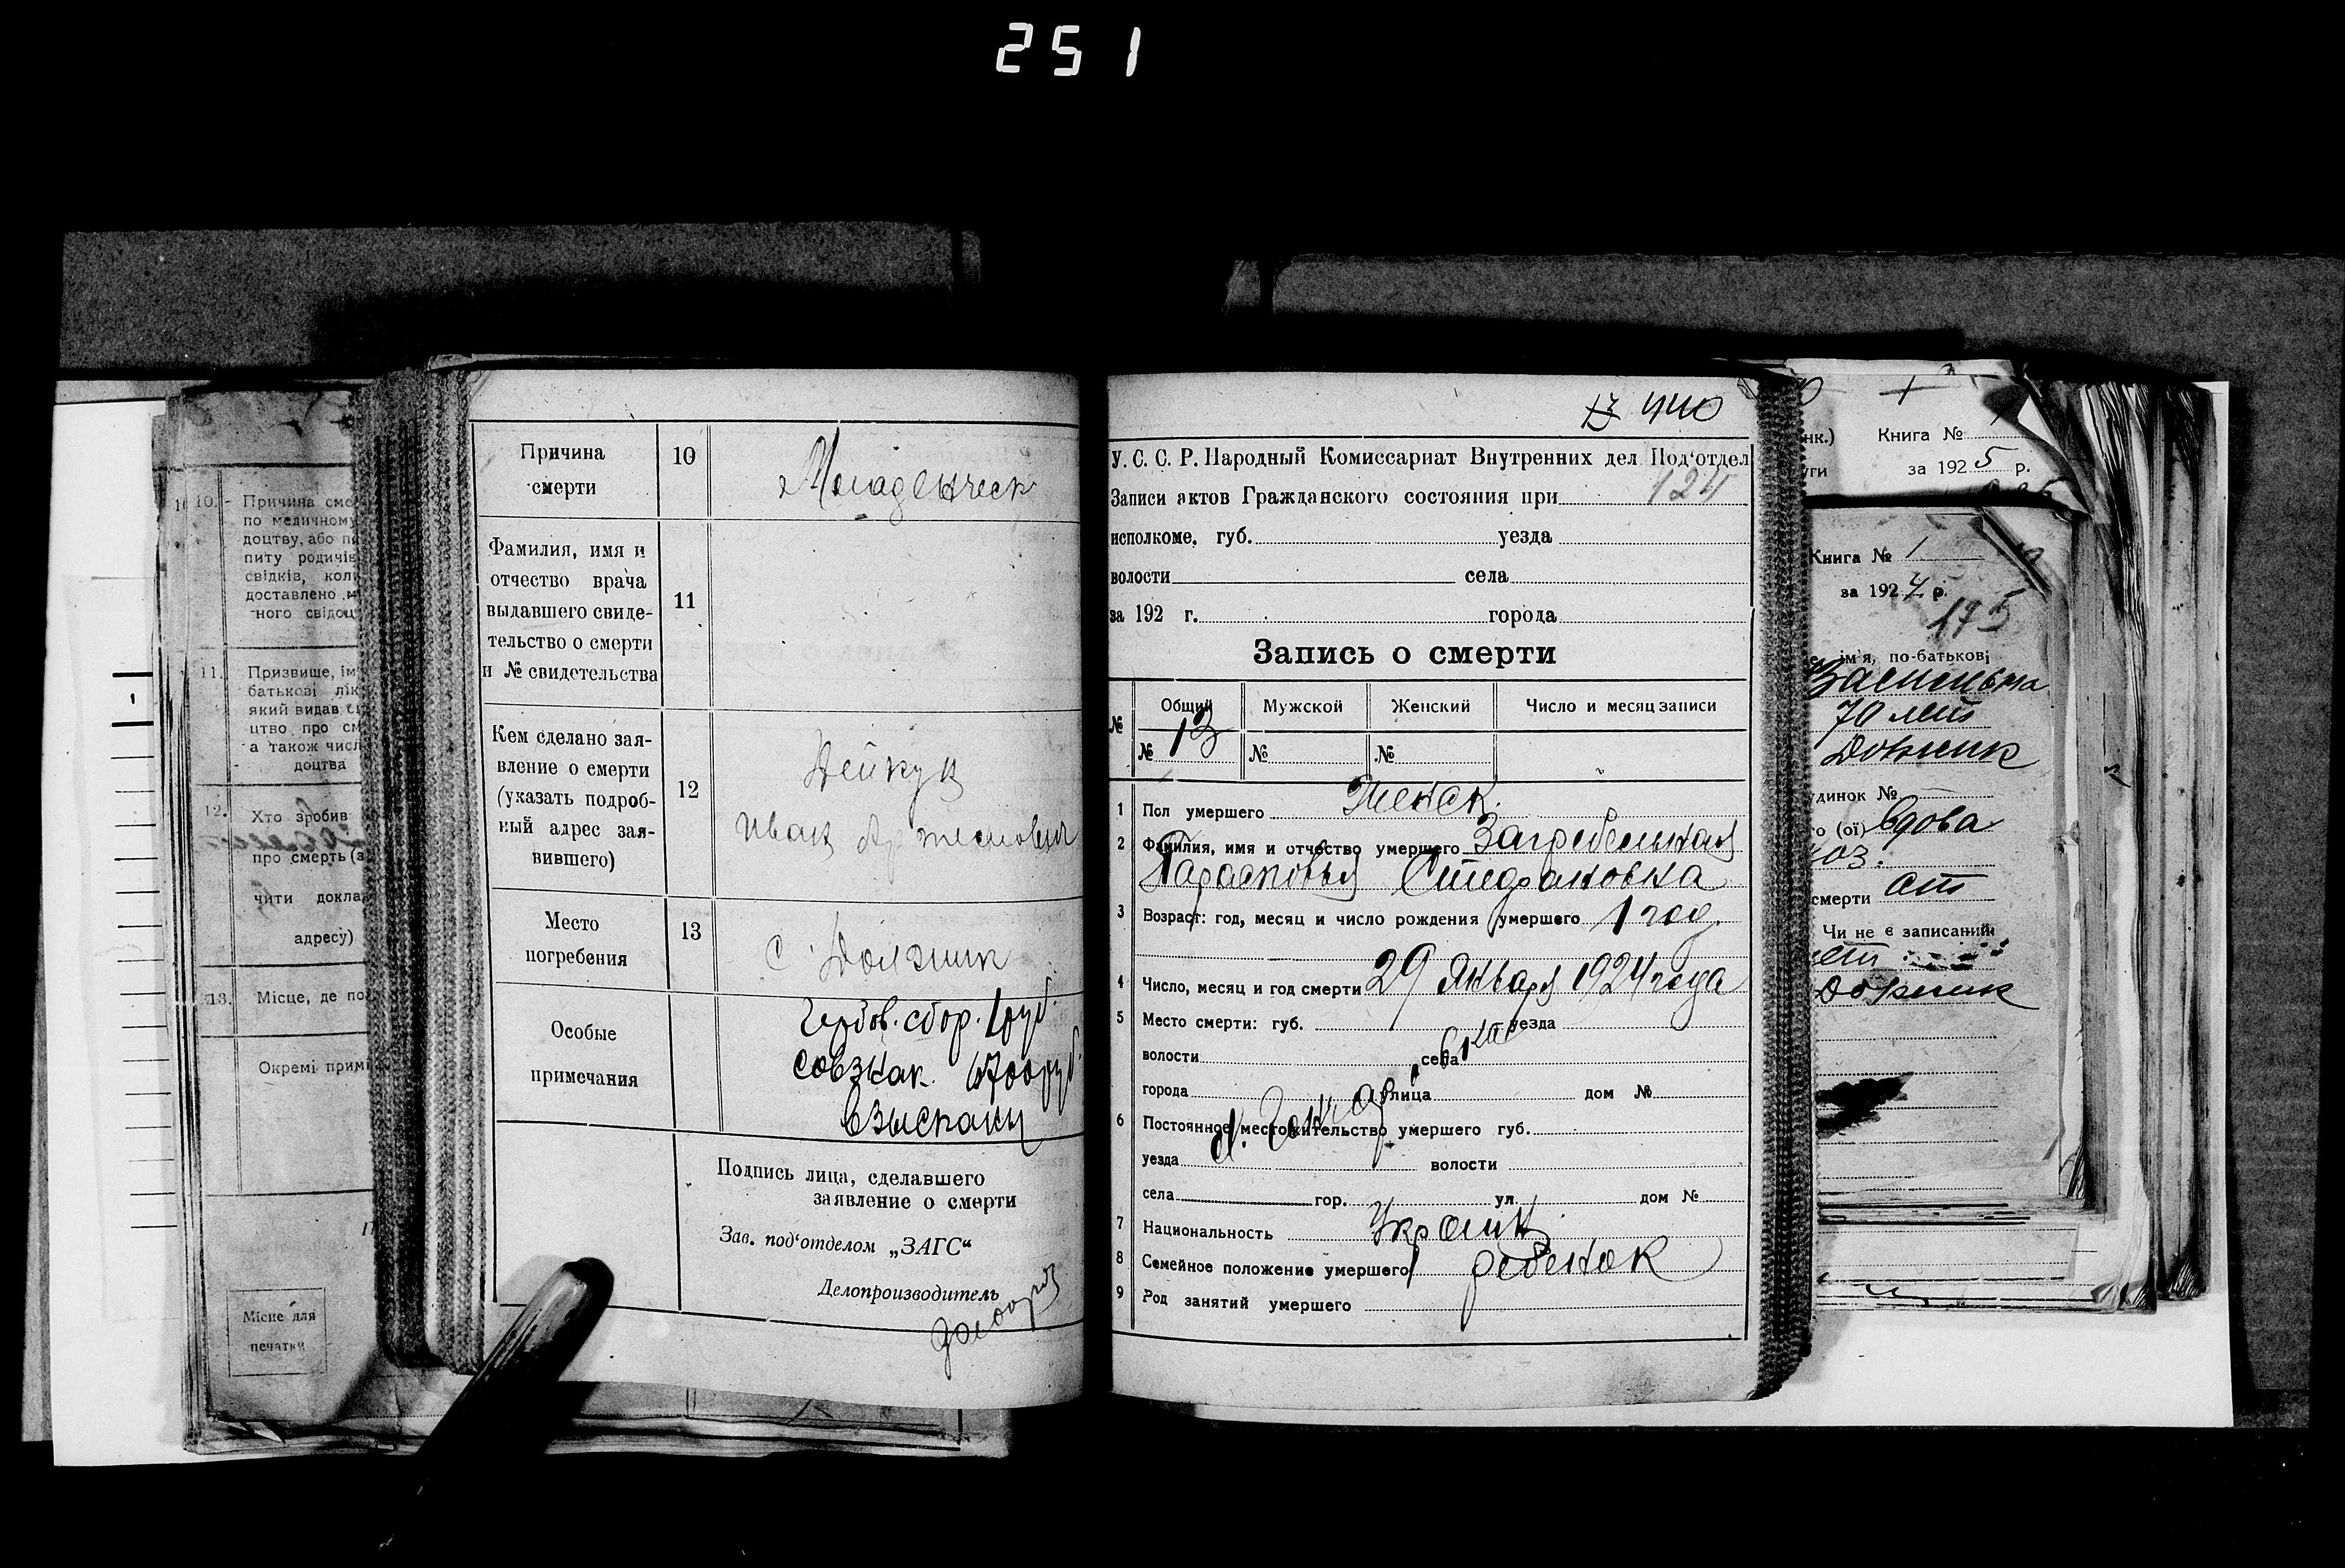 251
Причина смерти
10
Младенческ
Фамилия, имя и отчество врача выдавшего свиде-
тельство о смерти и № свидетельства
11
Кем сделано зая-
вление о смерти
(указать подроб-
ный адрес зая-
вившего)
12
Иван Артемович
Место погребения
13
с Должик
Особые примечания
Гербов. сбор. 1 руб.
совзнак.
взыскани
Подпись лица, сделавшего
заявление о смерти
Зав. под‘отделом „ЗАГС“
Делопроизводитель
13 440
У. С. С. Р. Народный Комиссариат Внутренних дел Под‘отдел
Записи актов Гражданского состояния при
124
исполкоме, губ. уезда
волости села
за 192 г. города
Запись о смерти
№ Общий Мужской Женский Число и месяц записи
№ 13 № №
1 Пол умершего Женск.
2 Фамилия, имя и отчество умершего Загребельная
Парасковья Стефановна
3 Возраст: год, месяц и число рождения умершего 1 год.
4 Число, месяц и год смерти 29 Января 1924 года
5 Место смерти: губ. уезда
волости села
города улица дом №
6 Постоянное местожительство умершего губ.
уезда волости
села гор. ул. дом №
7 Национальность Украинк
8 Семейное положение умершего ребенок
9 Род занятий умершего
10. Причина сме
по медичному
доцтву, або
питу родичів
свідків, кол
доставлено
ного свідоц
11. Призвище, ім
батькові лік
який видав
цтво про см
а також числ
доцтва
12. Хто зробив
про смерть
чити докла
адресу)
13. Місце, де по
Окремі прим
Місце для
печатки
нк.) Книга №
уги за 1925 р.
Книга № 1
за 1924 р.
175
ім'я, по-батькові
70 лет
динок №
го (ої) вдова
смерти
Чи не є записаний